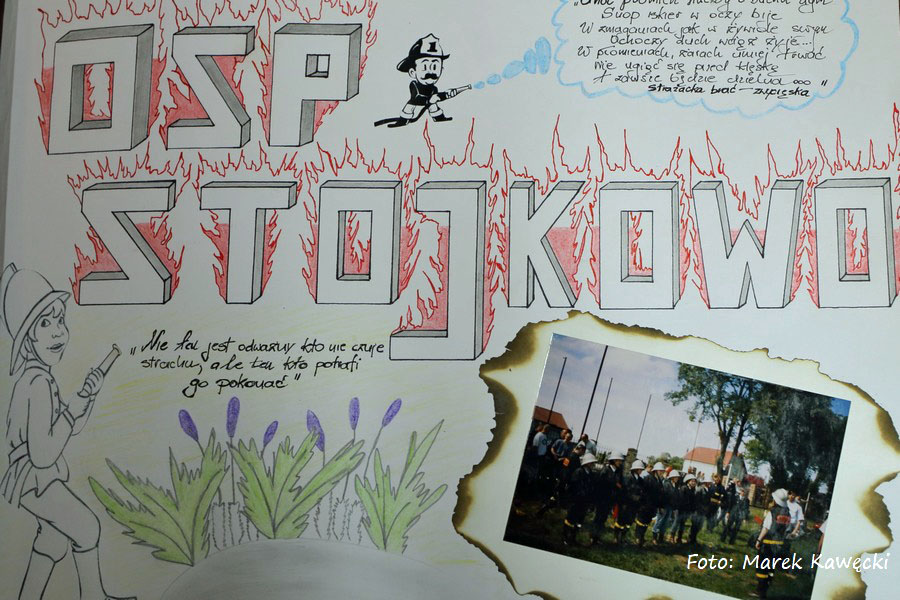 OSP
1
Snop iskier w oczy bije
W zmaganiach jak w żywiole swym
Ochoczy duch wciąż żyje...
W płomieniach, iskrach umiej trwać
Nie ugiąć się przed klęską
A zawsze będzie dzielna ooo"
strażacka brać – zwycięska
STOJKOWO
„Nie ten jest odważny kto nie czuje
strachu, ale ten kto potrafi
go pokonać"
Foto: Marek Kawęcki